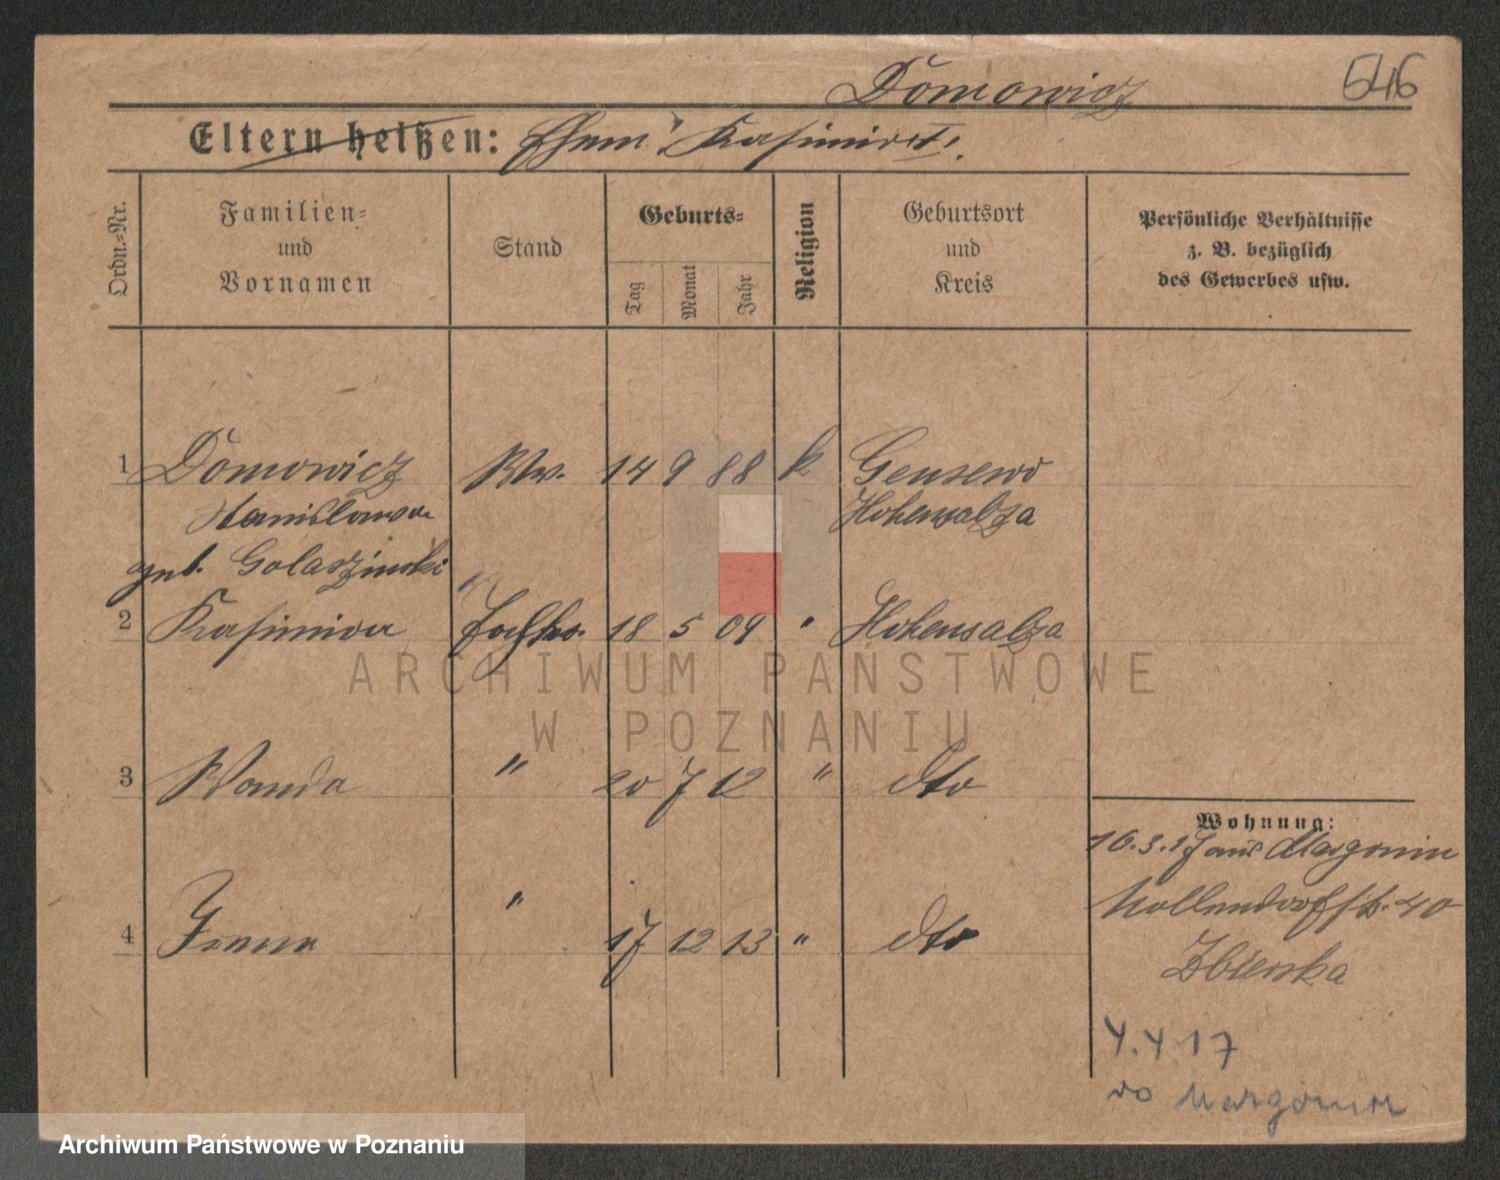 Domowicz
546
Eltern heißen: Ehem. Kasimir I.
Ordn.-Nr.
Familien-
und
Vornamen
Stand
Geburts-
Tag
Monat
Jahr
Religion
Geburtsort
und
Kreis
Persönliche Verhältnisse
z. B. bezüglich
des Gewerbes usw.
1 Domowicz Ww. 14 9 88 k Gensewo
Stanislawa Hohensalza
geb. Golaszinski
2 Kasimira 18 5 09 " Hohensalza
3 Wanda " 20 7 12 " dto
4 Irena " 17 12 13 " dto
Wohnung:
16.3.17 aus Margonin
Mollendorfstr. 40
Zbierska
4.4.17
Margonin
ARCHIWUM PAŃSTWOWE
W POZNANIU
Archiwum Państwowe w Poznaniu